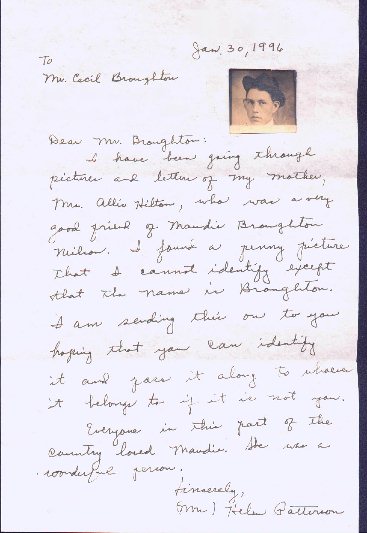 Jan. 30, 1996
To
Mr. Cecil Broughton
Dear Mr. Broughton:
I have been going through
pictures and letters of my mother,
Mrs. Allie Hilton, who was a very
good friend of Maudie Broughton
Neilson. I found a penny picture
that I cannot identify except
that the name is Broughton.
I am sending this on to you
hoping that you can identify
it and pass it along to whoever
it belongs to if it is not you.
Everyone in this part of the
country loved Maudie. She was a
wonderful person.
Sincerely,
(Mrs.) Helen Patterson